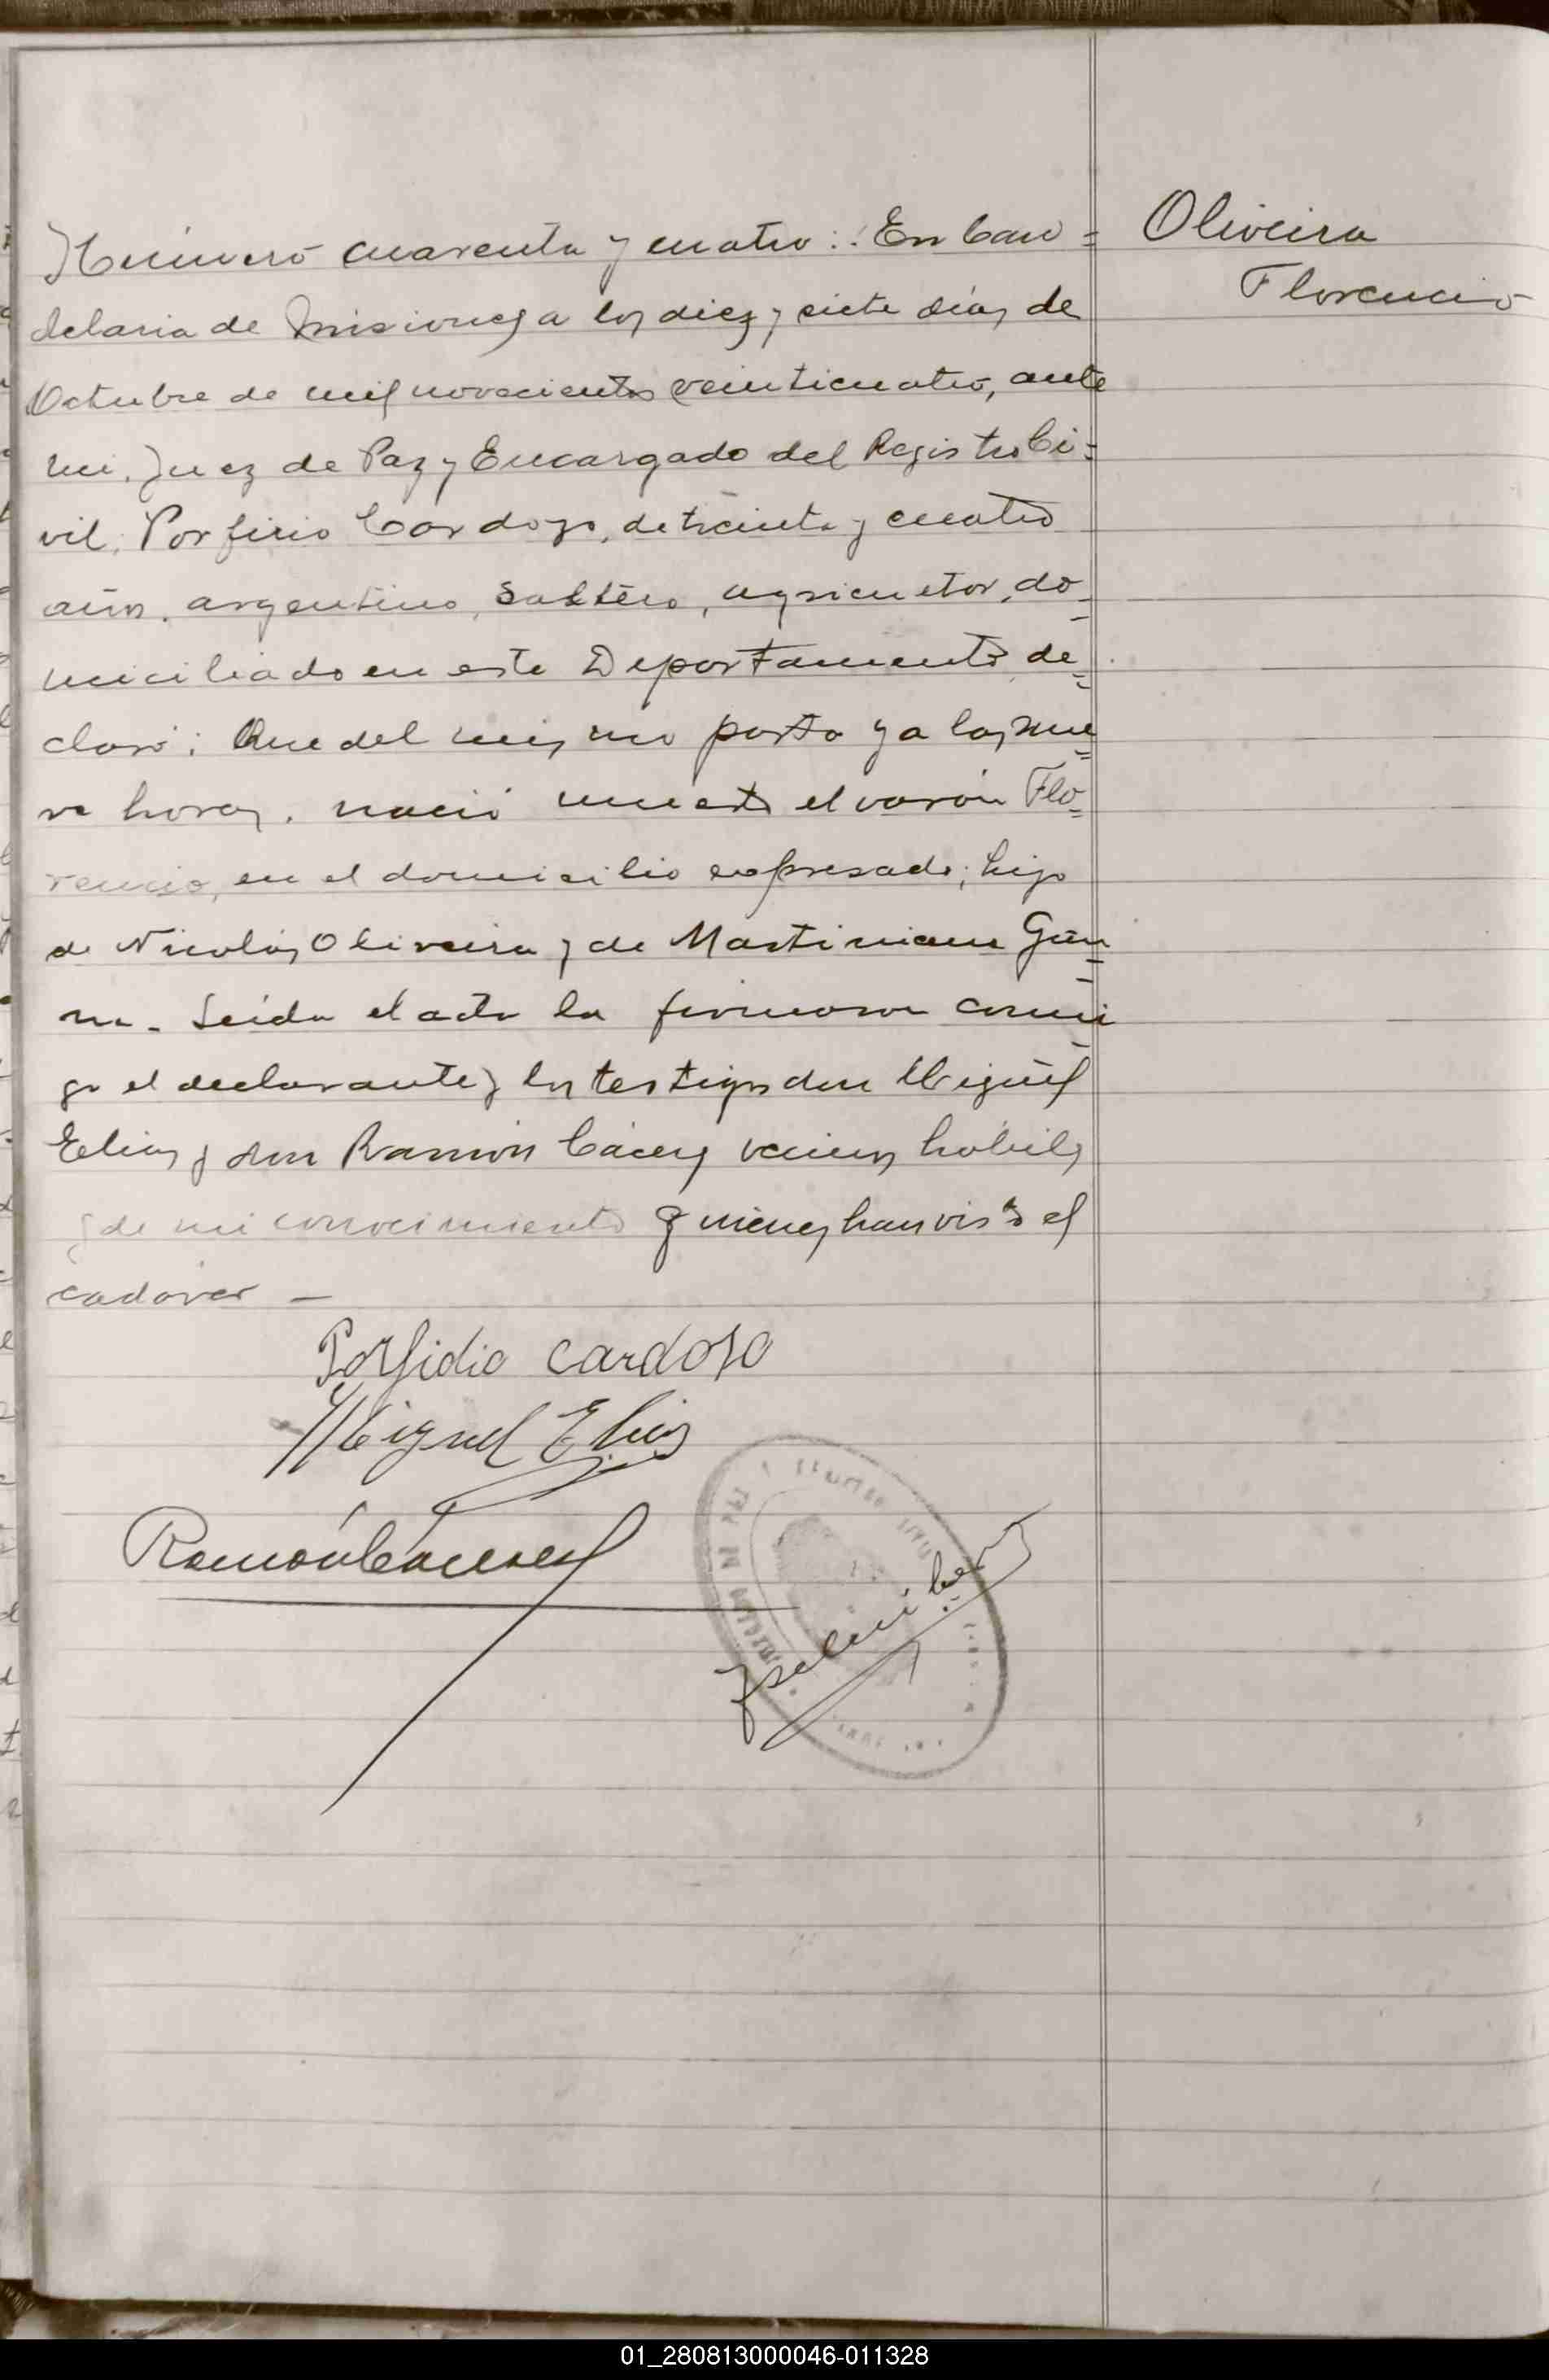 Número cuarenta y cuatro: En Can=
delaria de Misiones a los diez y siete días de
Octubre de mil novecientos veinticuatro, ante
mi, Juez de Paz y Encargado del Registro Ci=
vil, Porfirio Cardozo, de treinta y cuatro
años, argentino, soltero, agricultor, do-
miciliado en este Departamento, de=
claró: Que del mismo parto y a las nue=
ve horas, nació muerto el varón Flo=
rencio, en el domicilio expresado; hijo
de Nicolás Oliveira y de Martiniana
Leída el acta la firmaron conmi
go el declarante y los testigos don Miguel
Elias y don Ramón Cáceres vecinos hábiles
y de mi conocimiento quienes han visto el
cadaver —
Porfidio Cardoso
Miguel Elias
Ramón Cáceres
Oliveira
Florencio
01_280813000046-011328